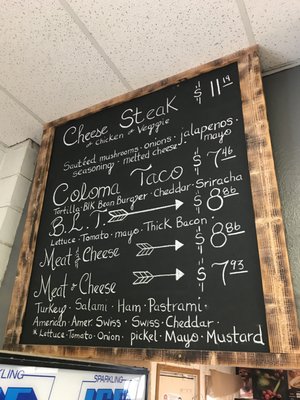 Cheese Steak $11.19
or Chicken or Veggie
Sautéed mushrooms · onions · jalapeños ·
seasoning · melted cheese mayo
Coloma Taco $7.46
Tortilla · Blk Bean Burger · Cheddar · Sriracha
B.L.T $8.86
Lettuce · Tomato · mayo · Thick Bacon
Meat & Cheese $8.86
Meat & Cheese $7.93
Turkey · Salami · Ham · Pastrami ·
American · Amer. Swiss · Swiss · Cheddar ·
* Lettuce · Tomato · Onion · pickel · Mayo · Mustard
SPARKLING
ICE